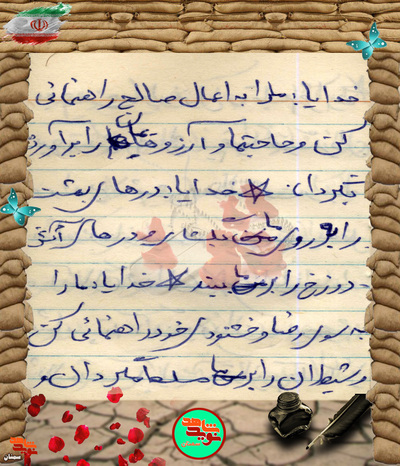 خدایا: ما را به اعمال صالح راهنمائی
کن و حاجتها و آرزوهای ما را برآورده
بگردان. خدایا: درهای بهشت
را به روی ما بگشای و درهای آتش
دوزخ را بر ما ببند خدایا: ما را
به سوی رضا و خشنودی خود راهنمائی کن
و شیطان را بر ما مسلط مگردان و
شاهد
نوید
شاهد
نوید
سمنان